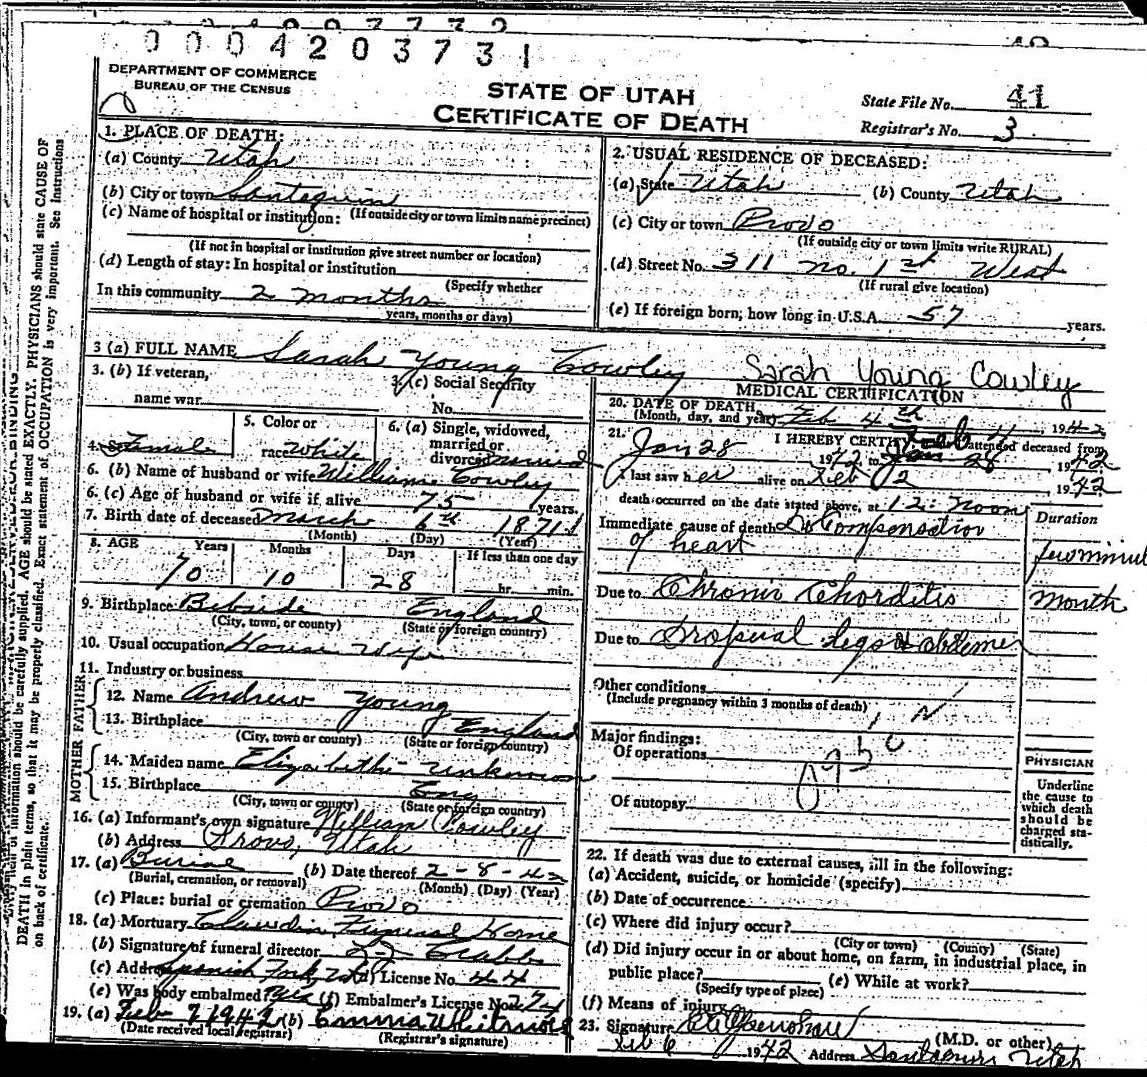 0 0 0 4 2 0 3 7 3 1
DEPARTMENT OF COMMERCE
BUREAU OF THE CENSUS
STATE OF UTAH
CERTIFICATE OF DEATH
State File No. 41
Registrar's No. 3
1. PLACE OF DEATH:
(a) County Utah
(b) City or town Santaquin
(c) Name of hospital or institution: (If outside city or town limits name precinct)
(If not in hospital or institution give street number or location)
(d) Length of stay: In hospital or institution
(Specify whether
In this community 2 months
years, months or days)
2. USUAL RESIDENCE OF DECEASED:
(a) State Utah (b) County Utah
(c) City or town Provo
(If outside city or town limits write RURAL)
(d) Street No. 311 no. 1st West
(If rural give location)
(e) If foreign born, how long in U.S.A. 57 years.
3 (a) FULL NAME Sarah Young Cowley Sarah Young Cowley
3. (b) If veteran,
name war
3. (c) Social Security
No.
4. Female
5. Color or
race White
6. (a) Single, widowed,
married or
divorced married
6. (b) Name of husband or wife William Cowley
6. (c) Age of husband or wife if alive 75 years.
7. Birth date of deceased March 6th 1871
(Month) (Day) (Year)
8. AGE Years Months Days If less than one day
70 10 28 hr. min.
9. Birthplace Bebside England
(City, town, or county) (State or foreign country)
10. Usual occupation House Wife
11. Industry or business
FATHER
12. Name Andrew Young
13. Birthplace England
(City, town or county) (State or foreign country)
MOTHER
14. Maiden name Elizabeth - unknown
15. Birthplace Eng
(City, town or county) (State or foreign country)
16. (a) Informant's own signature William Cowley
(b) Address Provo, Utah
17. (a) Burial (b) Date thereof 2-8-42
(Burial, cremation, or removal) (Month) (Day) (Year)
(c) Place: burial or cremation Provo
18. (a) Mortuary Claudin Funeral Home
(b) Signature of funeral director
(c) Address Spanish Fork, Ut (d) License No. 44
(e) Was body embalmed? Yes (f) Embalmer's License No. 274
19. (a) Feb 7 1942 (b) Emma Whitmore
(Date received local registrar) (Registrar's signature)
MEDICAL CERTIFICATION
20. DATE OF DEATH
(Month, day, and year) Feb 4th, 1942
21. I HEREBY CERTIFY, attended deceased from
Jan 28 1942 to Feb 4 Jan 28 1942
I last saw her alive on Feb 2, 1942
death occurred on the date stated above, at 12:Noon
Duration
Immediate cause of death Decompensation
of heart
Due to Chronic Chorditis month
Due to Dropsical legs &
Other conditions
(Include pregnancy within 3 months of death)
Major findings:
Of operations
Of autopsy
PHYSICIAN
Underline
the cause to
which death
should be
charged sta-
tistically.
22. If death was due to external causes, fill in the following:
(a) Accident, suicide, or homicide (specify)
(b) Date of occurrence
(c) Where did injury occur?
(City or town) (County) (State)
(d) Did injury occur in or about home, on farm, in industrial place, in
public place? (e) While at work?
(Specify type of place)
(f) Means of injury
23. Signature (M.D. or other)
Feb 6 1942 Address Santaquin Utah
AGE should be stated EXACTLY. PHYSICIANS should state CAUSE OF
DEATH in plain terms, so that it may be properly classified. Exact statement of OCCUPATION is very important. See Instructions
on back of certificate.